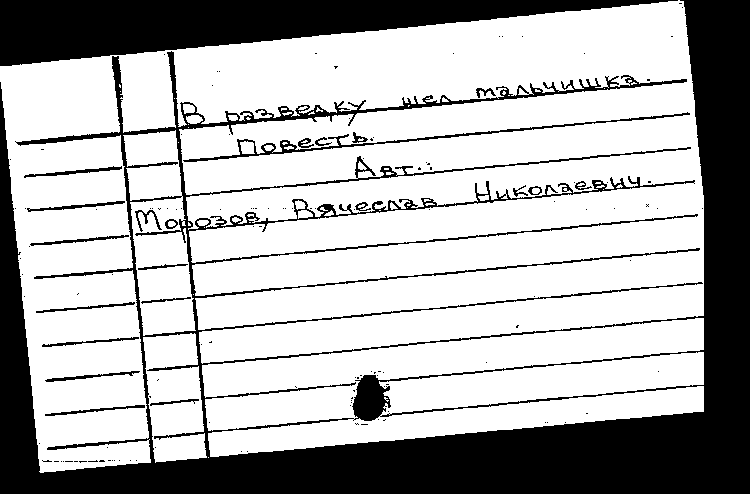 В разведку шел мальчишка.
Повесть.
Авт.:
Морозов, Вячеслав Николаевич.